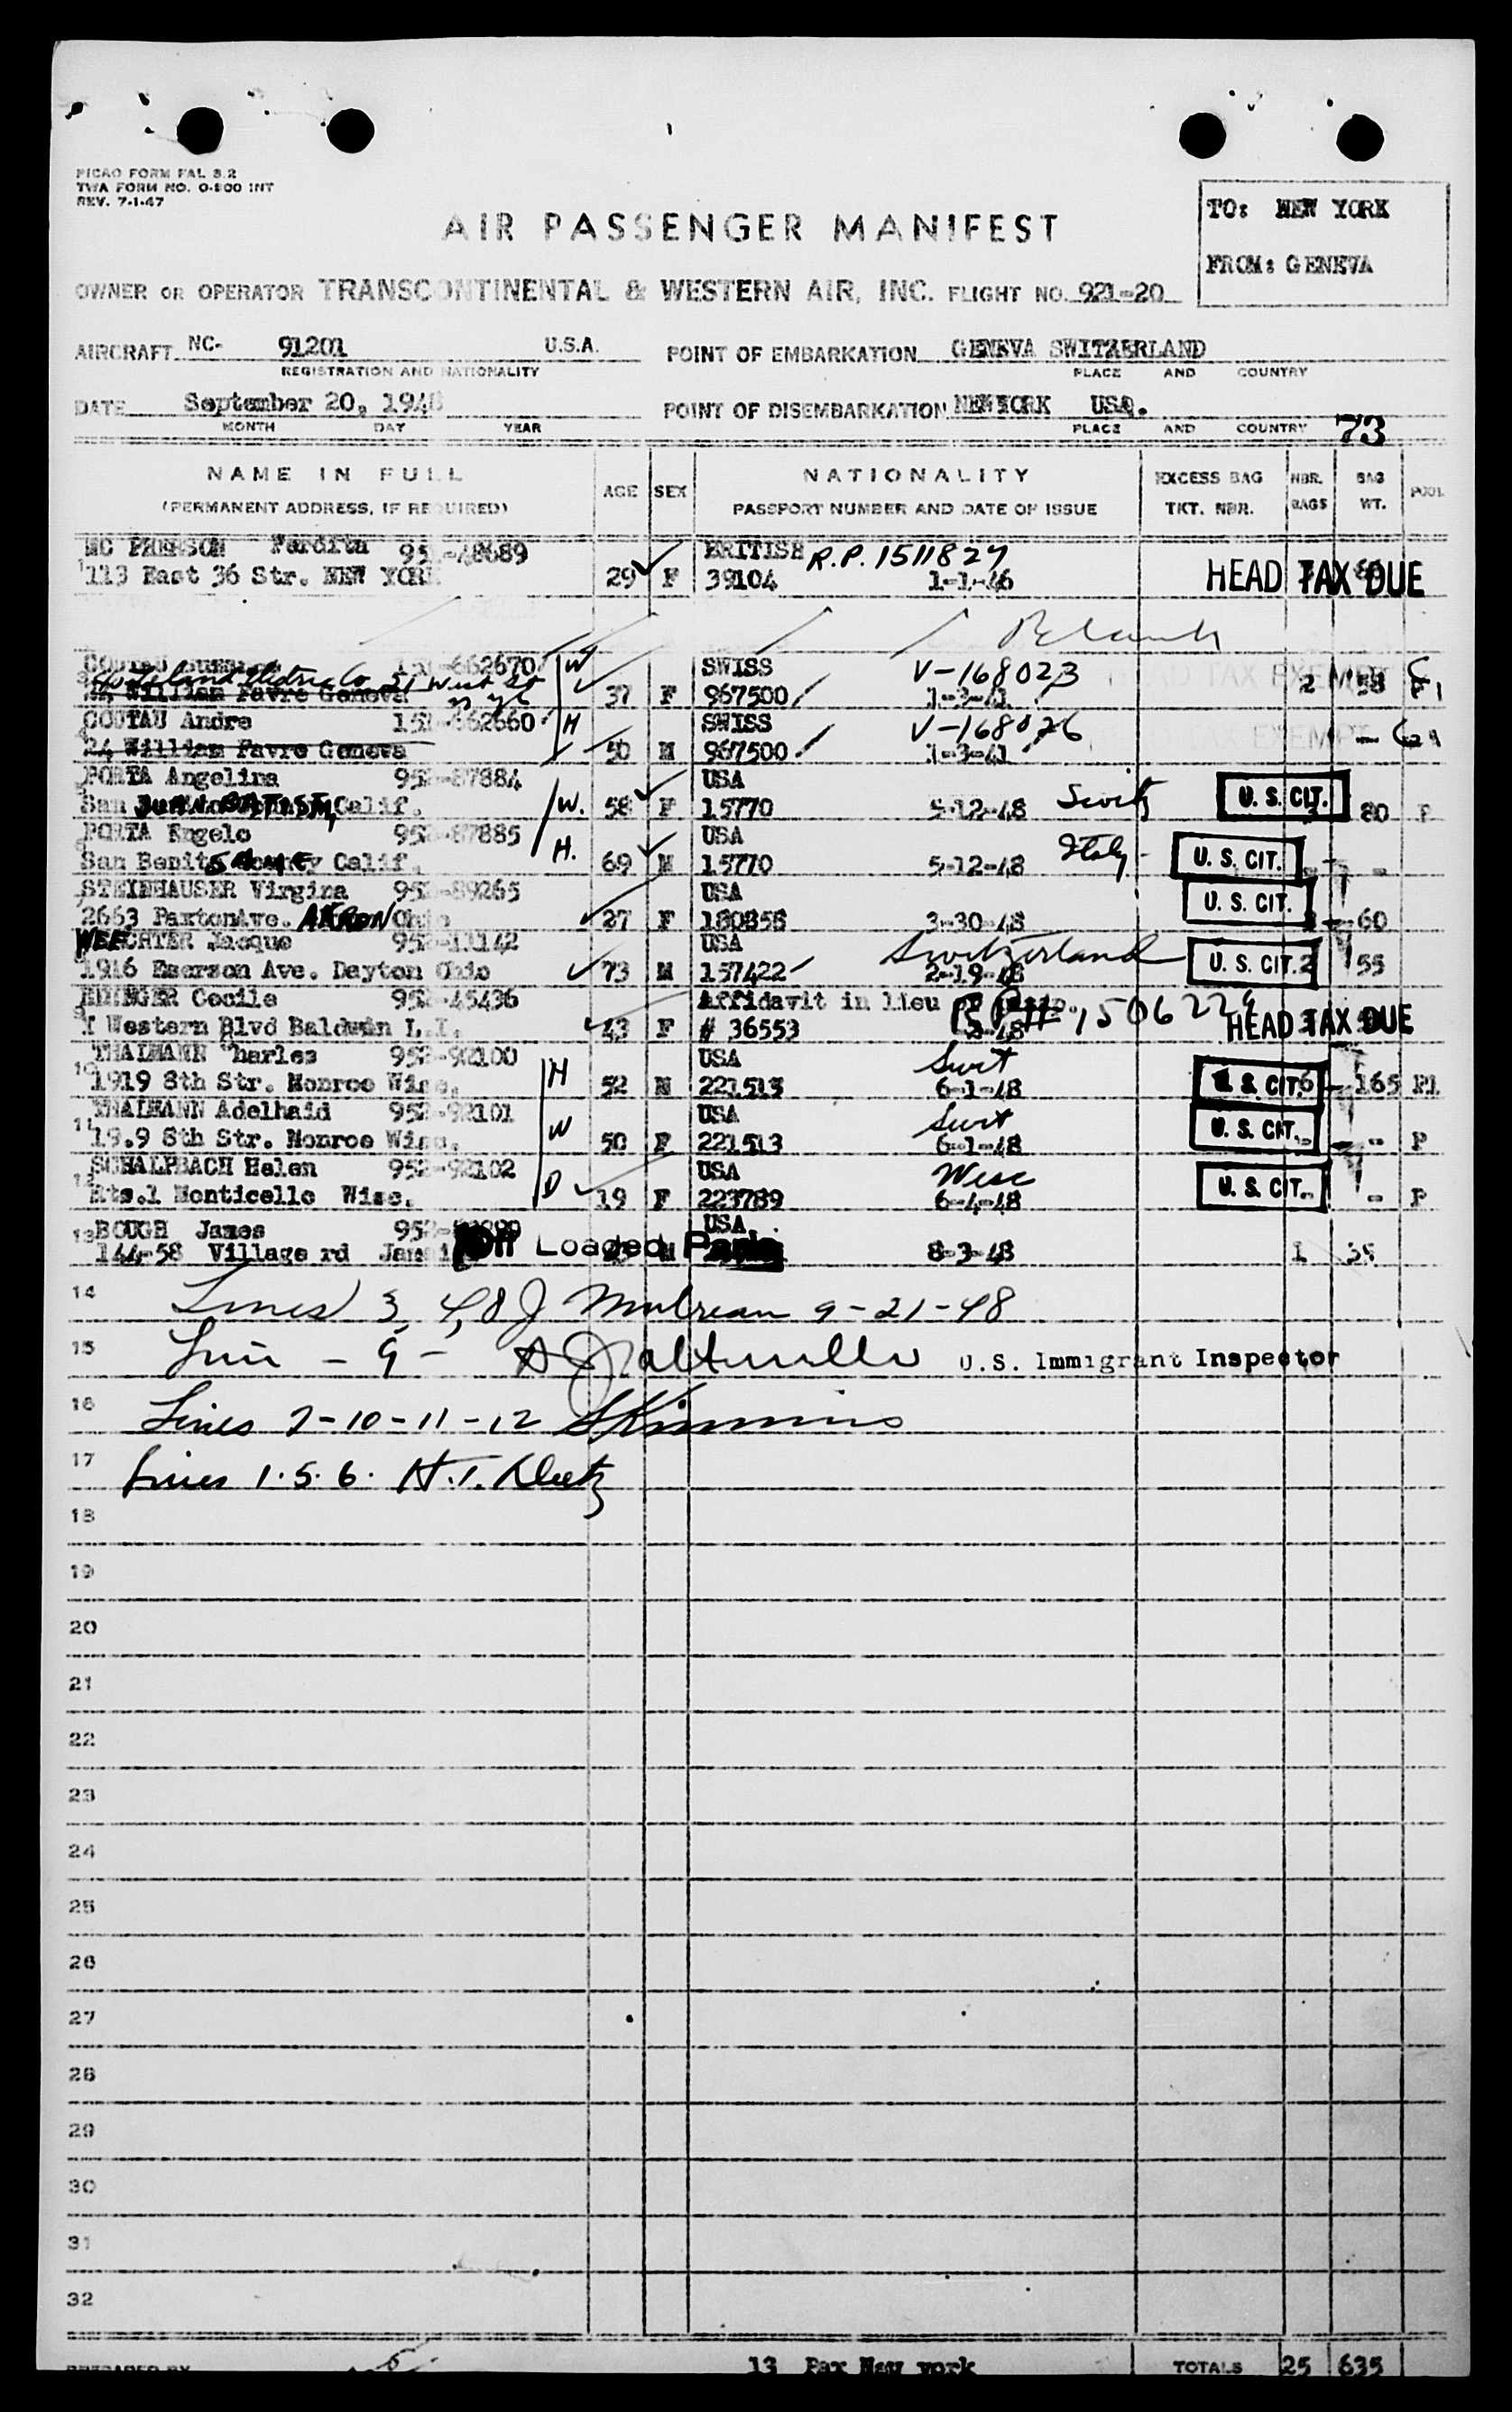 PICAO FORM FAL 3.2
TWA FORM NO. O-800 INT
REV. 7-1-47
TO: NEW YORK
FROM: GENEVA
AIR PASSENGER MANIFEST
OWNER OR OPERATOR TRANSCONTINENTAL & WESTERN AIR, INC. FLIGHT NO. 921-20
AIRCRAFT NC- 91201 U.S.A. POINT OF EMBARKATION GENEVA SWITZERLAND
REGISTRATION AND NATIONALITY PLACE AND COUNTRY
DATE September 20, 1948 POINT OF DISEMBARKATION NEWYORK USA.
MONTH DAY YEAR PLACE AND COUNTRY 73
NAME IN FULL AGE SEX NATIONALITY EXCESS BAG NBR. BAG POOL
(PERMANENT ADDRESS, IF REQUIRED) PASSPORT NUMBER AND DATE OF ISSUE TKT. NBR. BAGS WT.
MC PHERSON Perdita 952-48689 BRITISH R.P. 1511827
1 113 East 36 Str. NEW YORK 29 F 39104 1-1-46 HEAD TAX DUE
COUTAU 152-662670 W SWISS V-168023 HEAD TAX EXEMPT
24 William Favre Geneva 37 F 967500 1-3-41 2 58
COUTAU Andre 152-662660 H SWISS V-168026 EXEMPT
24 William Favre Geneva 50 M 967500 1-3-41 -
PORTA Angelina 952-87884 USA Switz U. S. CIT.
San JUAN BATISTA, Calif. W. 58 F 15770 5-12-48 80 P
PORTA Engelo 952-87885 USA Italy U. S. CIT.
San Benito County Calif. SAME H. 69 M 15770 5-12-48 -
STEINHAUSER Virgina 952-89265 USA U. S. CIT.
2663 PaxtonAve. AKRON Ohio 27 F 180858 3-30-48 60
WEECHTER Jacque 952-11142 USA Switzerland
1916 Emerson Ave. Dayton Ohio 73 M 157422 2-19-48 U. S. CIT. 2 55
EDINGER Cecile 952-45436 Affidavit in lieu of passp. RP# 1506229
1 Western Blvd Baldwin L.I. 43 F # 36553 HEAD TAX DUE
THALMANN Charles 952-92100 USA Swit
10 1919 8th Str. Monroe Wisc. H 52 M 221513 6-1-48 U. S. CIT. 6 165 P1
THALMANN Adelhaid 952-92101 USA Swit
11 19.9 8th Str. Monroe Wisc. W 50 F 221513 6-1-48 U. S. CIT. - P
SCHALPBACH Helen 952-92102 USA Wisc
12 Rts.1 Monticello Wisc. D 19 F 223789 6-4-48 U. S. CIT. - P
13 BOUGH James USA
144-58 Village rd Off Loaded Paris 8-3-48 1 35
14 Lines 3, 4, 8 J Mulrean 9-21-48
15 Line - 9 - U.S. Immigrant Inspector
16 Lines 7-10-11-12 Skimmins
17 Lines 1.5.6.
18
19
20
21
22
23
24
25
26
27
28
29
30
31
32
PREPARED BY 13 Pax New york TOTALS 25 635